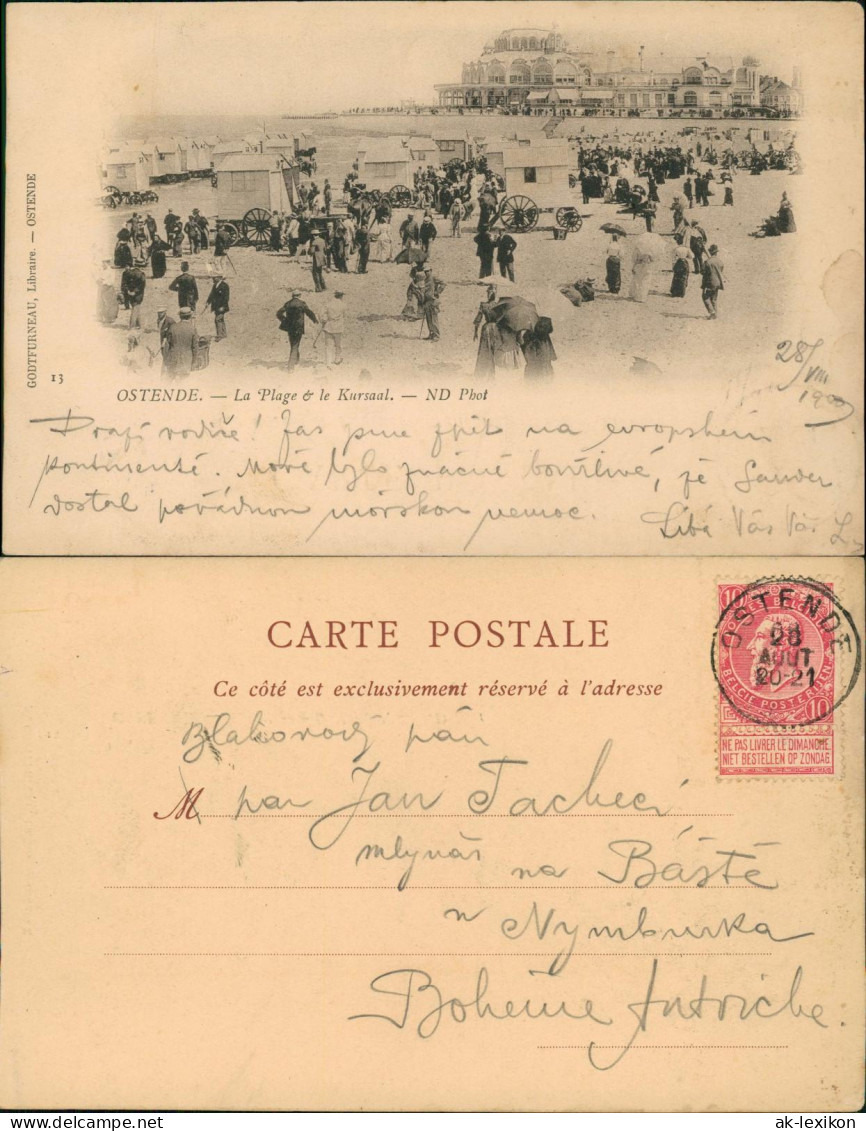 GODTFURNEAU, Libraire. — OSTENDE
13
OSTENDE. — La Plage & le Kursaal. — ND Phot
28/VIII
1900
Drazí rodiče! Jas jsme zpět na evropském
kontinentě. Moře bylo značně bouřlivé, že
dostal pořádnou mořskou nemoc. Líbá Vás Váš L
CARTE POSTALE
Ce côté est exclusivement réservé à l'adresse
OSTENDE
28
AOUT
20-21
10 10
BELGIE POSTERIJEN
NE PAS LIVRER LE DIMANCHE
NIET BESTELLEN OP ZONDAG
Blahorodý pán
M pan Jan Tachecí
mlynář na Báště
u Nymburka
Bohême Autriche.
ak-lexikon